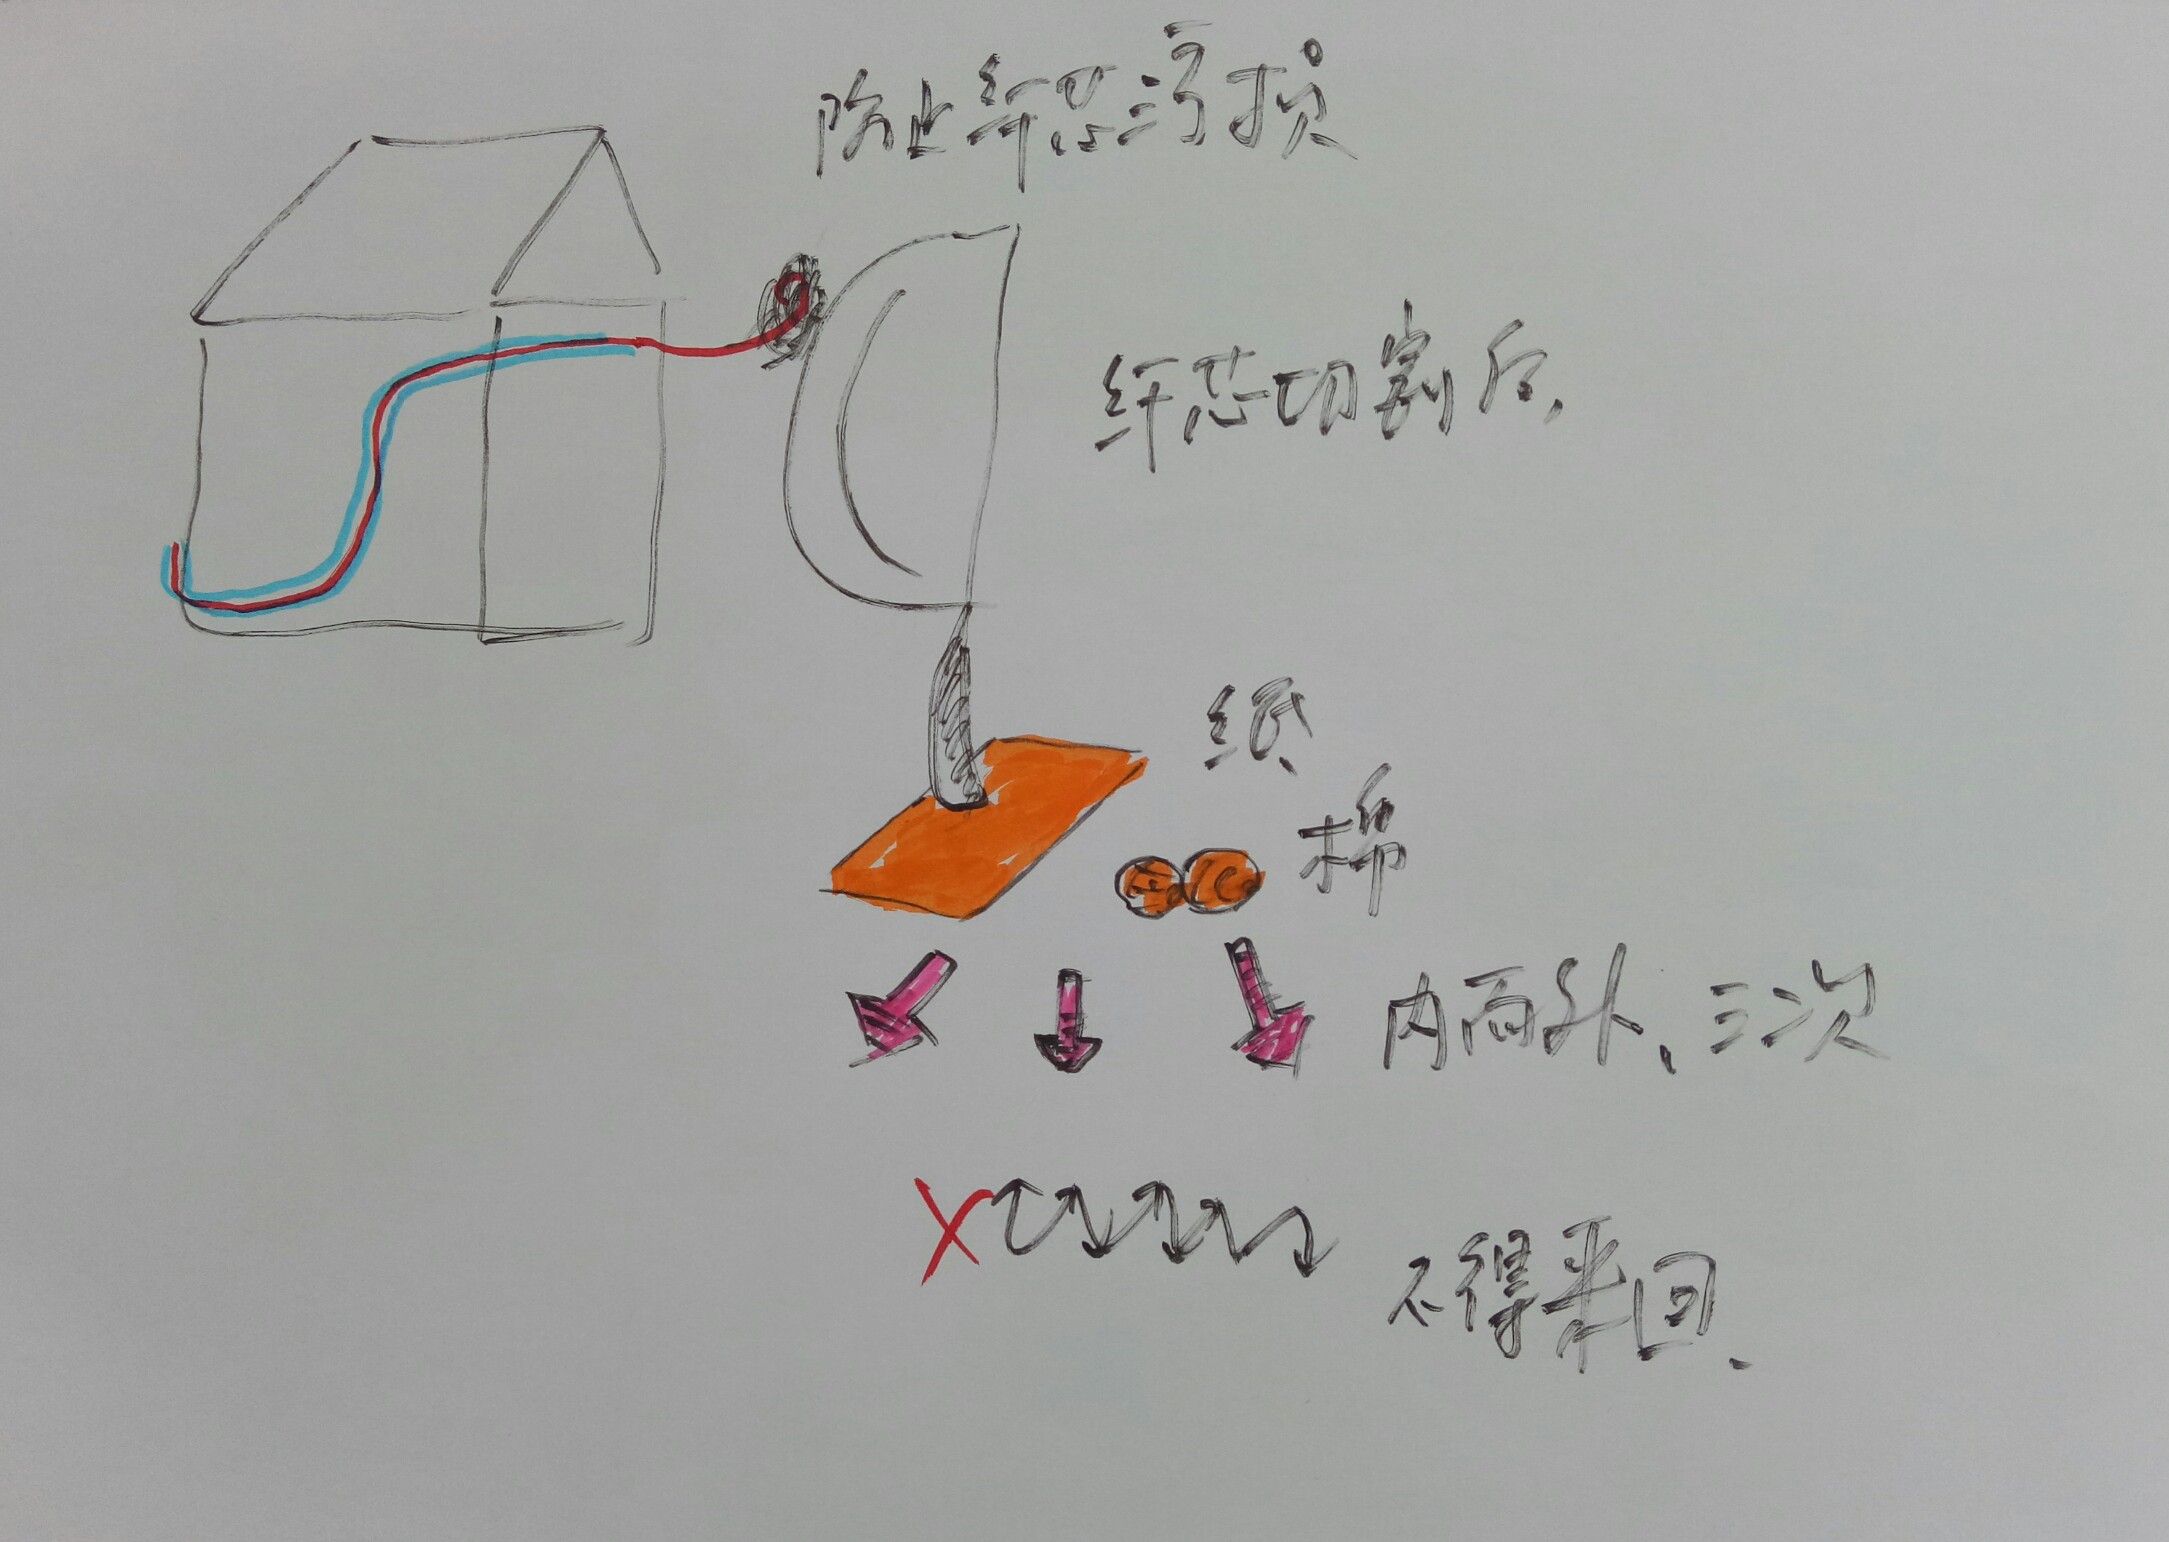 除止纤芯污损
纤芯切割后,
纸
棉
内而外、三次
不得来回、